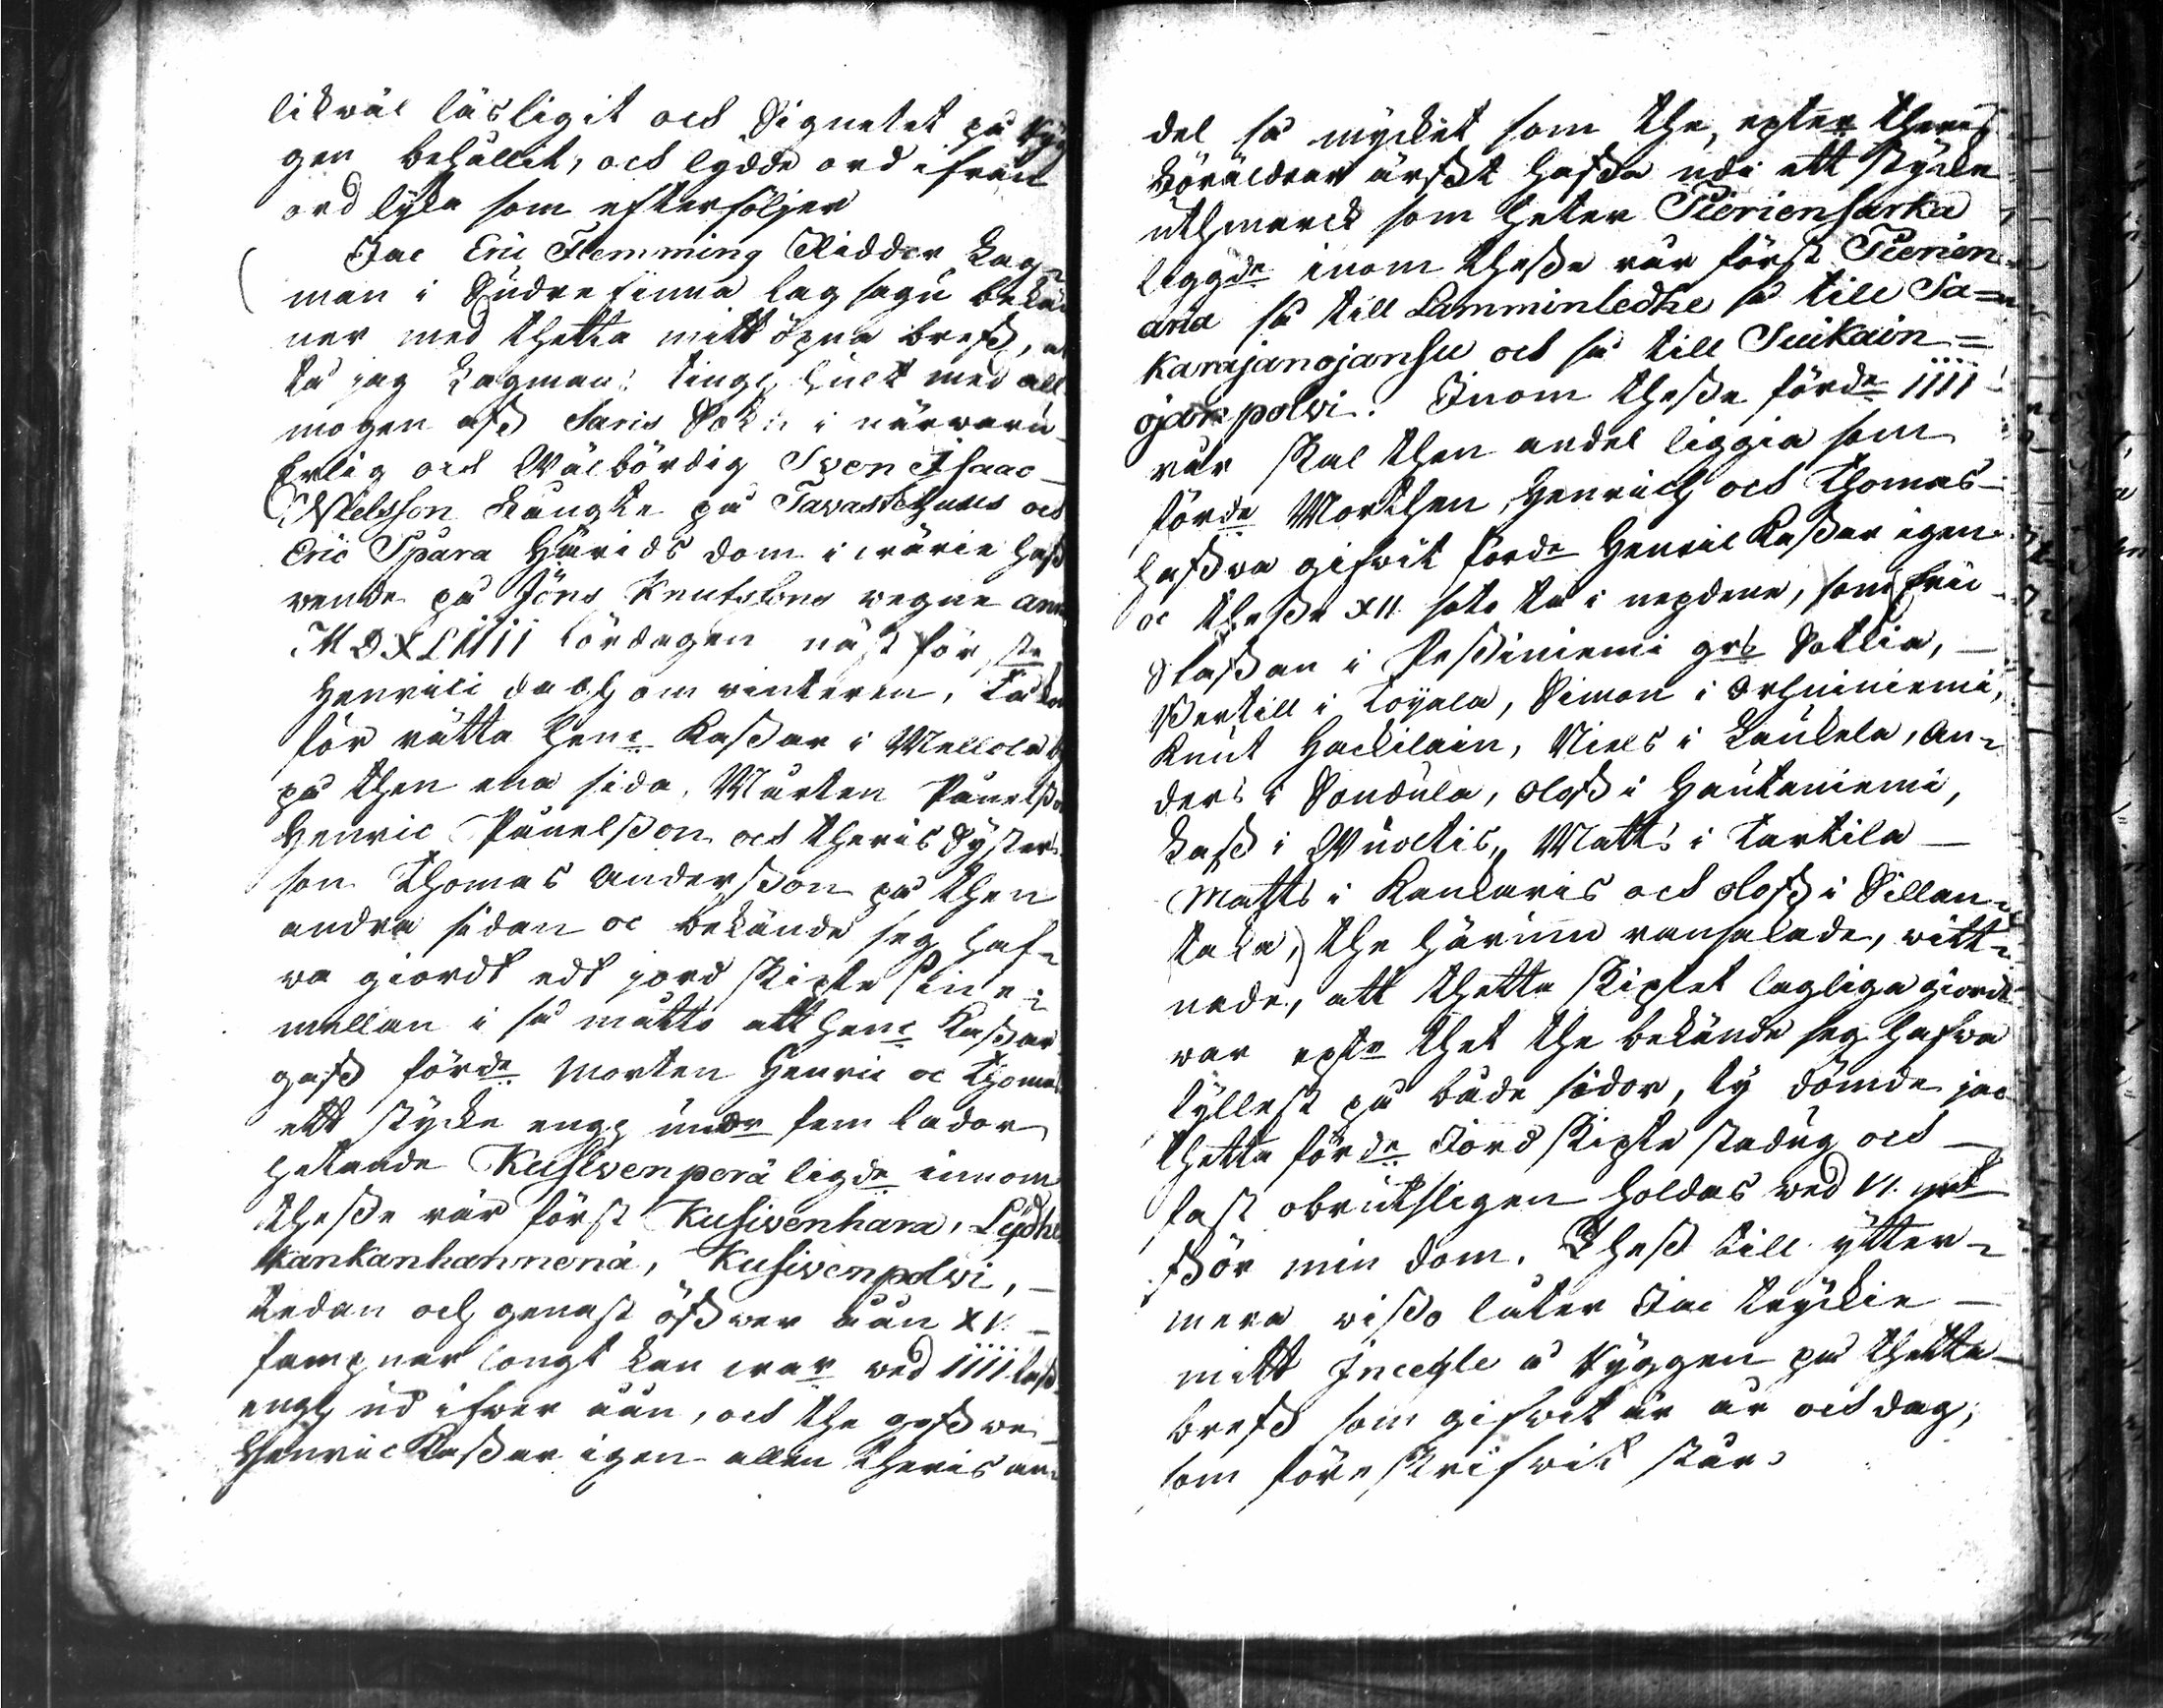 likwäl läsligit och Signetet på Ryg
gen behållit, och lydde ord ifrån
ord lyda som efterföljer
Jac Eric Flemming Ridder Lag-
man i Sudrefinna lagsagu bekän
ner med thetta mitt öpna breff, at
tå jag Lagmans tingh hult med all
mogen aff Saris Sokn i närwaru
Erlig och Wälbördig Swen Isaac
Nielsson Kungte på Tavastehuus och
Eric Spåra Härids dom i wärie haff
wende på Jöns Knutsons wegne anno
MDXLIIII Lördagen näst för Ste
Henrici dagh om winteren, Tå kom
för rätta Henc Kassar i Mellola by
på then ena sida, Mårten Påuelsson
Henric Påuelsson och theris Syster-
son Thomas Andersson på then
andra sidan oc bekände seg haf-
wa giordt edt jord skipte sine-
mellan i så mått att Henc Kassar
gaff förde Morten Henric oc Thomas
ett stycke engh under fem lador
hetande Kusiwenperä ligde innom
thesse rår först Kusivenhara, Leydhe
kankanhannenä, Kusivenpolvi, -
tedan och genast öffwer åån XV -
fampnar longt kan wara wed IIII lass
engh ud ifwer åån, och the gaffwe -
Henric Kassar igen allan theris an-
del så mycket som the, epter theres
Föräldrar ärfft haffa udi ett stycke
uthmarck som heter Pieriensarka
liggde inom thesse rår först Pierien-
ana så till Lamminledhe så till Sa=
karajanojansu och så till Suikain=
ojanpolvi. Inom thesse förde IIII
rår skal then andel liggia som
förde Morthen, Henrich och Thomas -
haffwa gifwit förde Henric Kassar igen
oc thesse XII sato tå i nepdene, som Eric
Olaffson i Pessiniemi grb Sattia, -
Bertill i Toyala, Simon i Orhiniemi,
Knut Hackilain, Niels i Laukela, An-
ders i Sondula, Oloff i Hautaniemi,
Lass i Wuoltis, Matts i Tartila -
Matts i Kankaris och Oloff i Sillan-
taka, the härinn ransakade, witt-
nade, att thetta skiptet lagliga giordt
war epter thet the bekände seg hafwa
fyllest på både sidor, ty dömde jac
thetta förde Jord skipte stadug och -
fast obrutsligen holdas wed VI. mrk
för min dom. Thess till ytter-
mera wisso låter Jac tryckie -
mitt Incegle å Ryggen på thetta
breff som gifwet är år och dag,
som före skrifwit står.